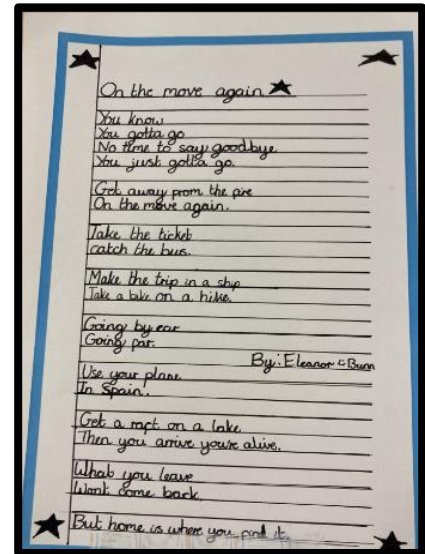 On the move again
You know
You gotta go
No time to say goodbye
You just gotta go.
Get away from the fire
On the move again.
Take the ticket
catch the bus.
Make the trip in a ship
Take a bike on a hike.
Going by car
Going far.
By: Eleanor & Bunn
Use your plane
In Spain.
Get a raft on a lake
Then you arrive you're alive.
What you leave
Wont come back.
But home is where you find it.